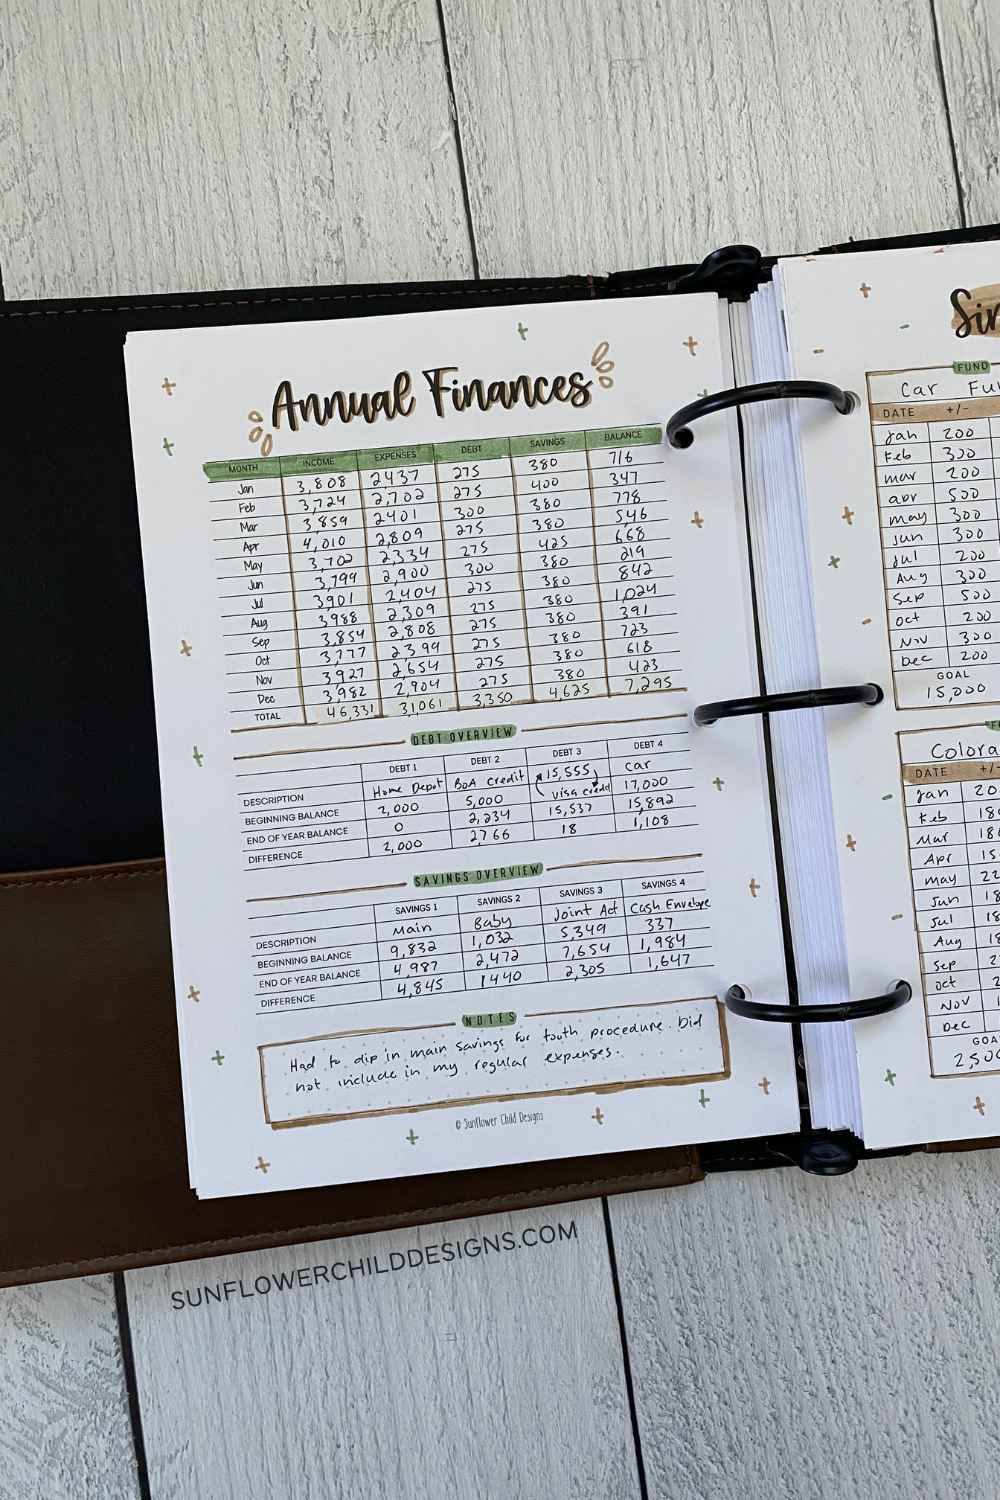 Annual Finances
MONTH INCOME EXPENSES DEBT SAVINGS BALANCE
Jan 3,808 2437 275 380 716
Feb 3,724 2,702 275 400 347
Mar 3859 2401 300 380 778
Apr 4,010 2,809 275 380 546
May 3,702 2,334 275 425 668
Jun 3,799 2,900 300 380 219
Jul 3901 2,404 275 380 842
Aug 3988 2,309 275 380 1,024
Sep 3,854 2,808 275 380 391
Oct 3,777 2399 275 380 723
Nov 3927 2,654 275 380 618
Dec 3,982 2,904 275 380 423
TOTAL 46,331 31,061 3,350 4,625 7,295
DEBT OVERVIEW
DEBT 1 DEBT 2 DEBT 3 DEBT 4
15,555
DESCRIPTION Home Depot BoA credit visa credit car
BEGINNING BALANCE 2,000 5,000 15,537 17,000
END OF YEAR BALANCE 0 2,234 18 15,892
DIFFERENCE 2,000 2766 1,108
SAVINGS OVERVIEW
SAVINGS 1 SAVINGS 2 SAVINGS 3 SAVINGS 4
DESCRIPTION Main Baby Joint Act Cash Envelope
BEGINNING BALANCE 9,832 1,032 5,349 337
END OF YEAR BALANCE 4,987 2,472 7,654 1,984
DIFFERENCE 4,845 1440 2,305 1,647
NOTES
Had to dip in main savings for tooth procedure. Did
not include in my regular expenses.
© Sunflower Child Designs
FUND
Car
DATE +/-
Jan 200
Feb 300
mar 200
apr 500
may 300
jun 300
Jul 200
Aug 300
Sep 500
Oct 200
Nov 300
Dec 200
GOAL
15,000
DATE
Jan
Feb
Mar
Apr
May
Jun
Jul
Aug
Sep
Oct
Nov
Dec
SUNFLOWERCHILDDESIGNS.COM